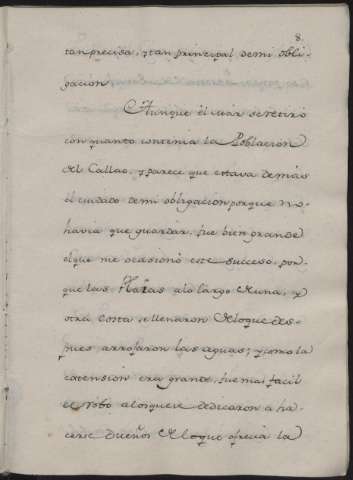 8.
tan precisa, y tan principal de mi obli-
gacion.
Aunque el mar se retiró
con quanto contenia la Poblacion
del Callao, y parece que estava demás
el cuidado de mi obligacion porque no
havia que guardar, fue bien grande
el que me ocasionó este sucesso, por-
que las Plaias a lo largo de una, y
otra Costa se llenaron de lo que des-
pues arrojaron las aguas; y como la
extension era grande, fue mas facil
el robo a los que se dedicaron a ha-
cerse Dueños de lo que ofrecia la